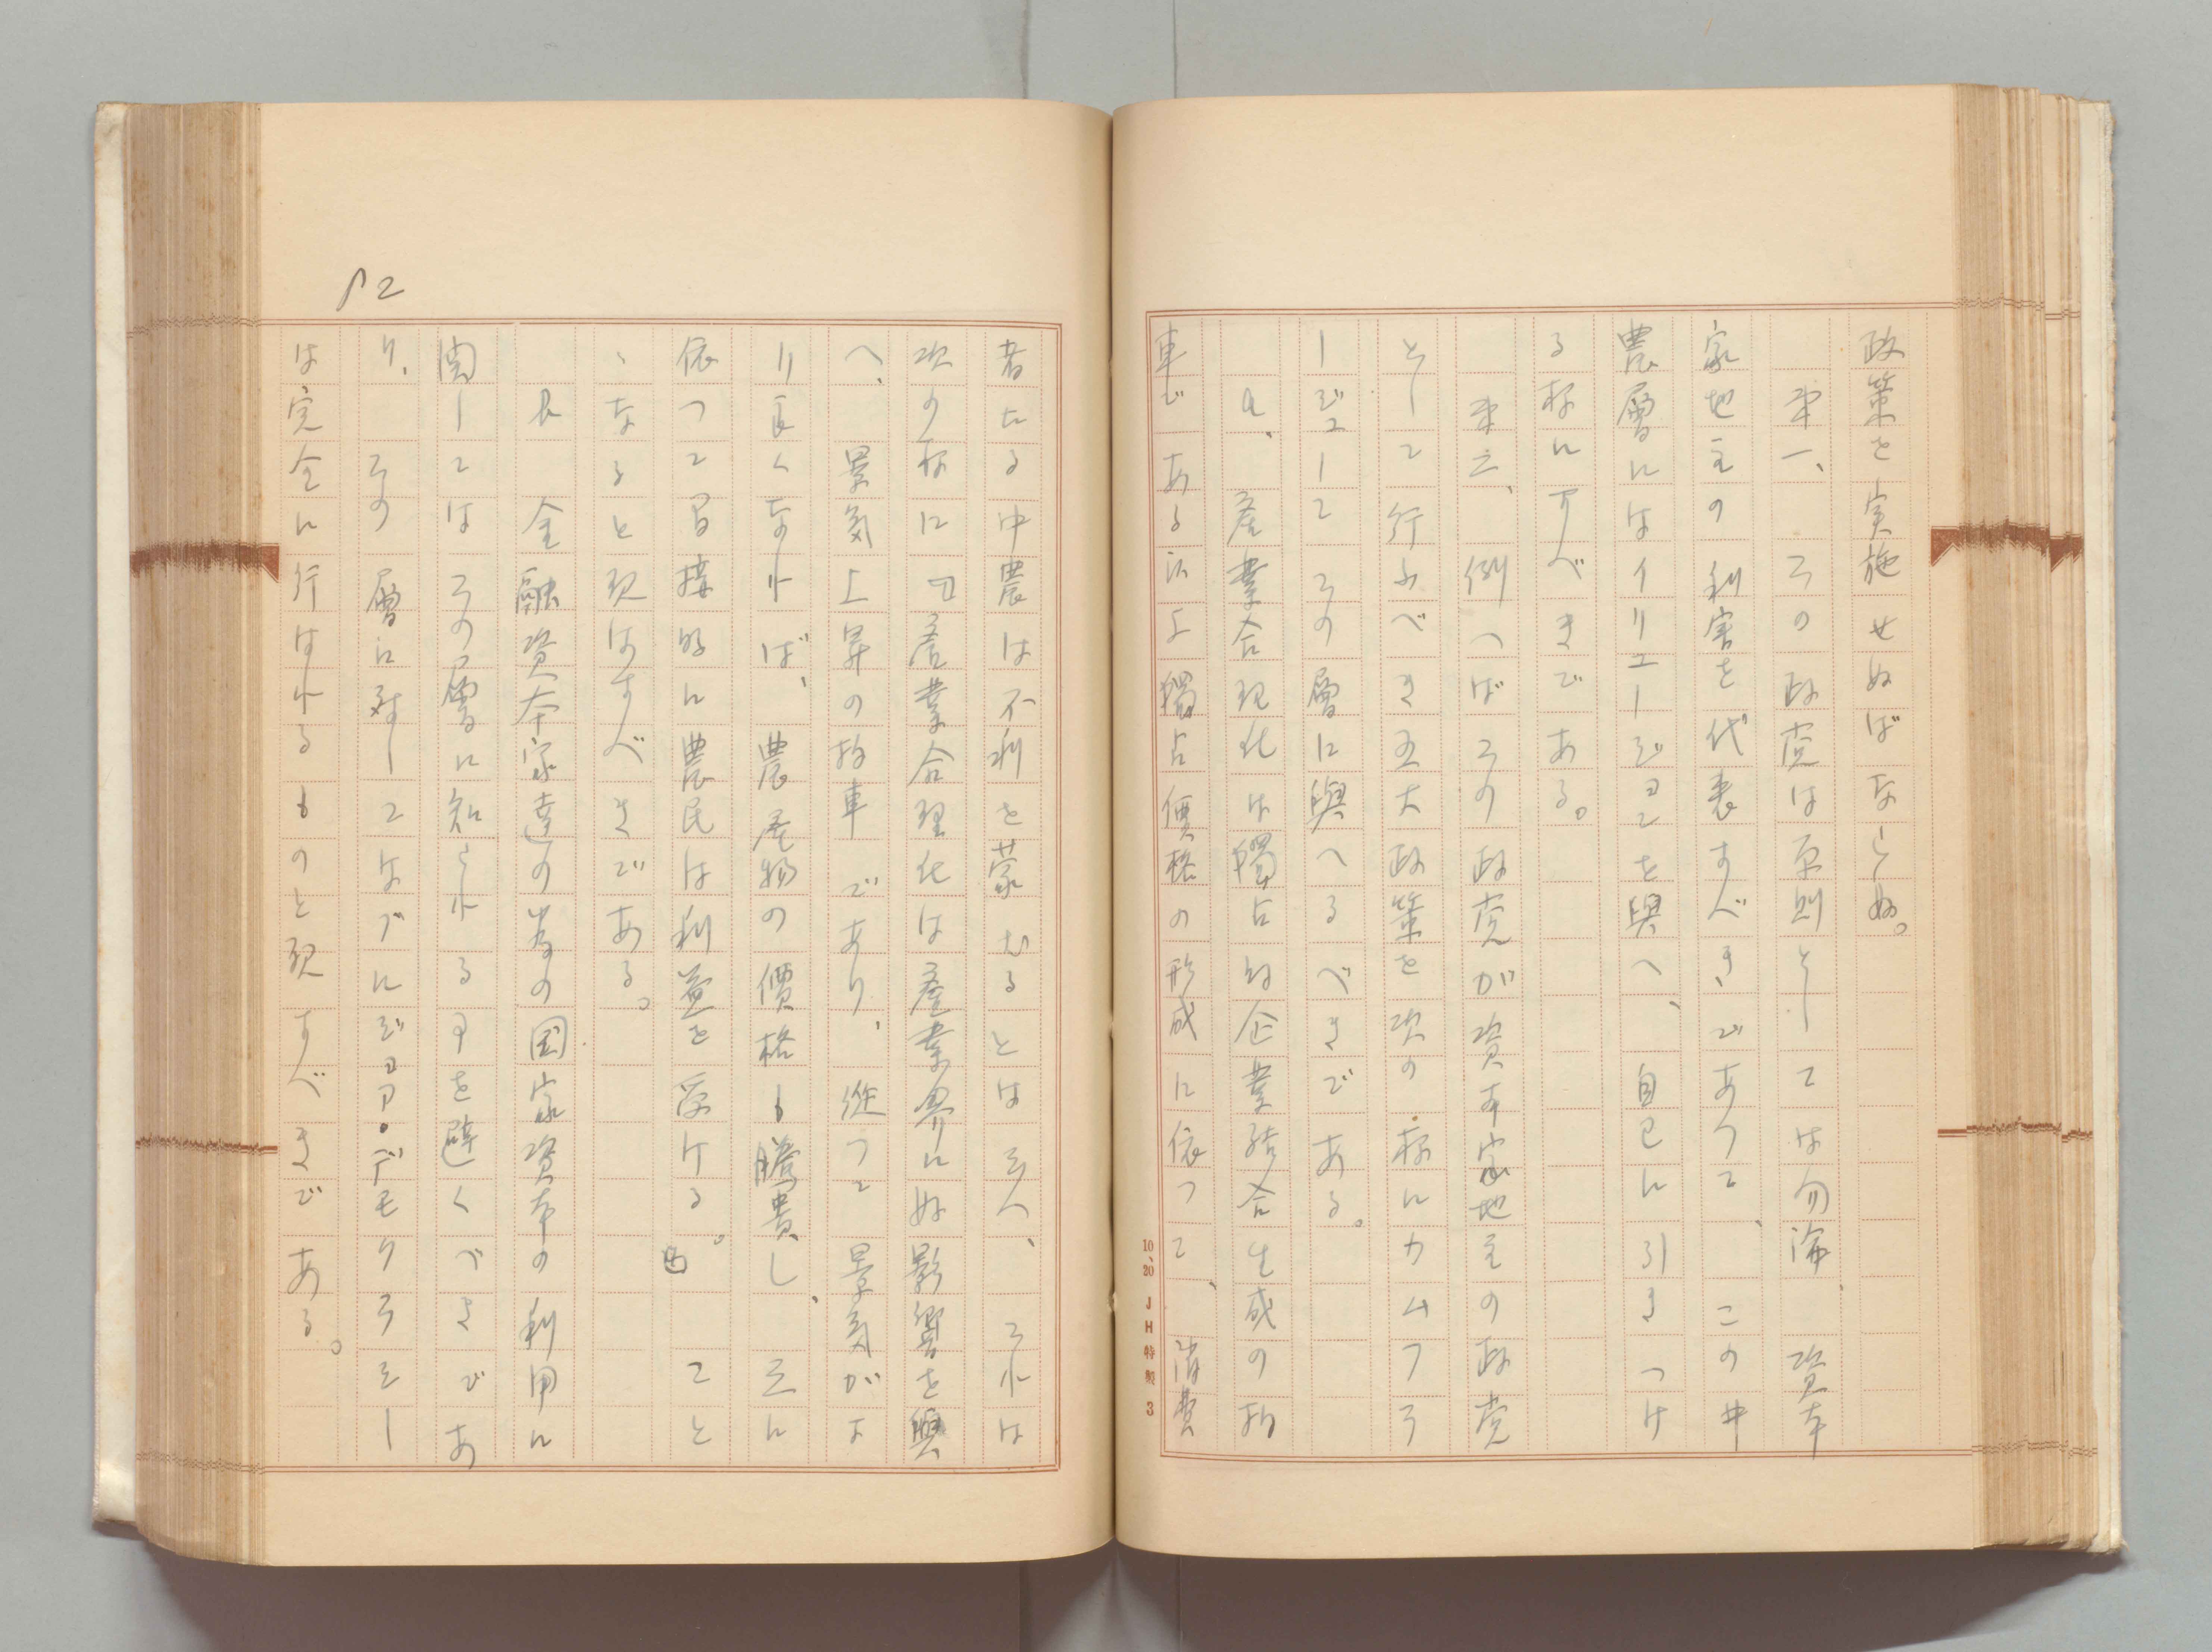 政策を実施せぬばならぬ。
第一、その政党は原則としては勿論、資本
家地主の利害を代表すべきであつて、この中
農層にはイリユージヨンを與へ、自己に引きつけ
る様にすべきである。
第二、例へばその政党が資本家地主の政党
として行ふべき五大政策を次の様にカムフラ
ージユしてその層に與へるべきである。
a、産業合理化は獨占的企業結合生成の拍
車である以上獨占價格の形成に依つて、消費
10、20 JH特製 3
者たる中農は不利を蒙むるとは云へ、それは
次の様に『産業合理化は産業界に好影響を與
へ、景気上昇の拍車であり、從つて景気がよ
り良くなれば、農産物の價格も騰貴し、之に
依つて間接的に農民は利益を受ける。』こと
ゝなると現はすべきである。
B 金融資本家達の為の国家資本の利用に
関してはその層に知られる事を避くべきであ
り、その層に対してはブルジヨア・デモクラシー
は完全に行はれるものと現すべきである。
12